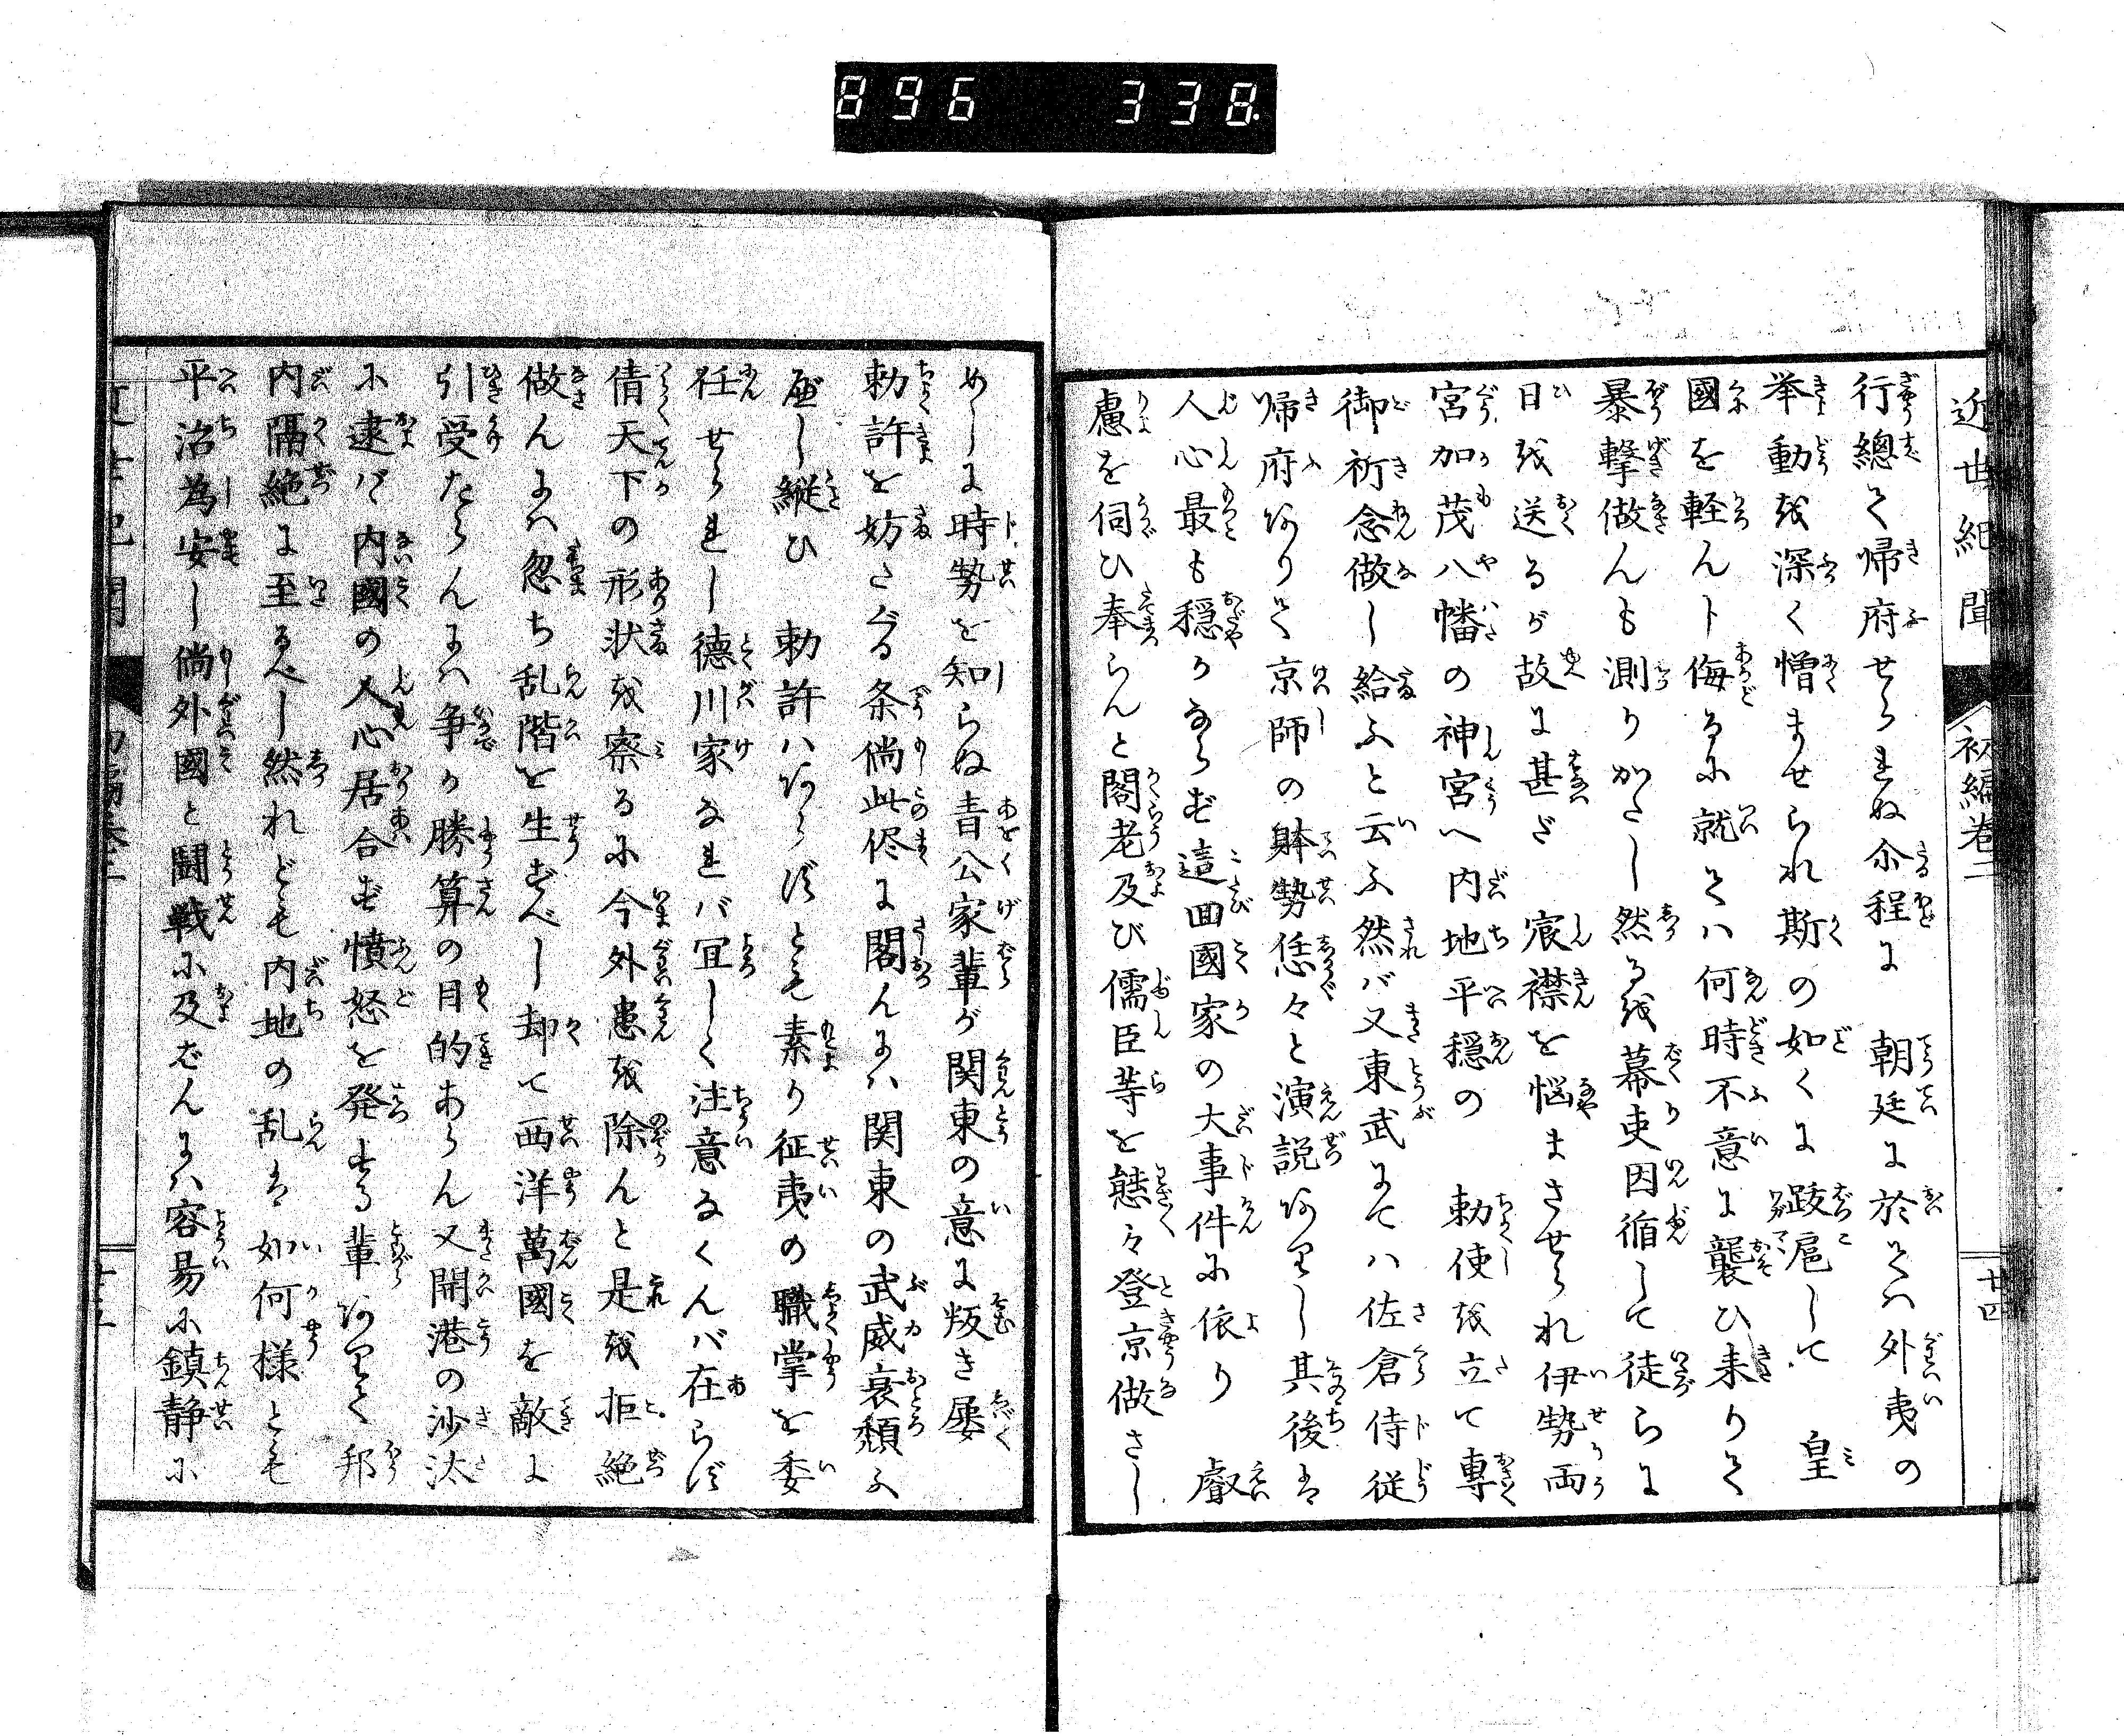 896 338
近世紀聞 初編巻二 廿四
行總て帰府せられぬ尒程に 朝廷に於ては外夷の
挙動を深く憎ませられ斯の如くに跋扈して 皇
國を軽んト侮るに就ては何時不意に襲ひ来りて
暴撃做んも測りがたし然るを幕吏因循して徒らに
日を送るが故に甚だ 宸襟を悩まさせられ伊勢両
宮加茂八幡の神宮へ内地平穏の 勅使を立て専
御祈念做し給ふと云ふ然バ又東武にてハ佐倉侍従
帰府ありて京師の躰勢恁々と演説ありし其後は
人心最も穏かならず這回國家の大事件に依り 叡
慮を伺ひ奉らんと閣老及び儒臣等を態々登京做さし
めしに時勢を知らぬ青公家輩が関東の意に叛き屡
勅許を妨たぐる条倘此侭に閣んにハ関東の武威衰頽ふ
歴し縦ひ 勅許ハあらずとも素り征夷の職掌を委
任せられし徳川家なれバ宜しく注意なくんバ在らず
倩天下の形状を察るに今外患を除んと是を拒絶
做んにハ忽ち乱階を生ずべし却て西洋萬國を敵に
引受たらんにハ争か勝算の目的あらん又開港の沙汰
に逮バ内國の人心居合ず憤怒を発する輩ありて邦
内隔絶に至るべし然れども内地の乱は如何様とも
平治為安し倘外國と闘戦に及ばんにハ容易に鎮静に